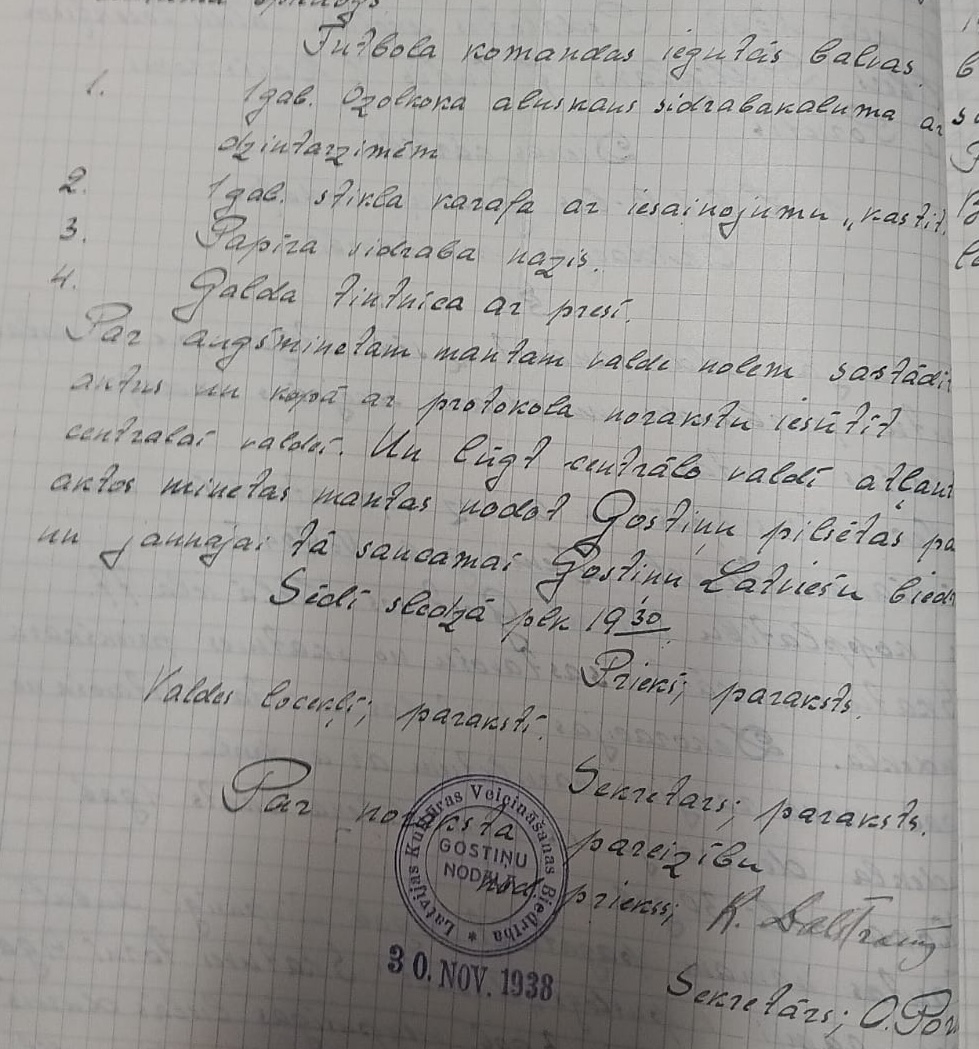 Futbola komandas iegutās balvas.
1. 1gab. Ozolkoka aluskaus sidrabakaluma ar
dzintarzimēm
2. 1gab. stikla karafa ar iesainojumu „kastit
3. Papīra sidraba nazis.
4. Galda tintnica ar presi.
Par augšminetam mantam valde nolem sastādi
aktus un kopā ar protokola norakstu iesūtīt
centralai valdei. Un lūgt centrālo valdi atļaut
aktos minetas mantas nodot Gostiņu pilsētas pa
un jaunajai tā saucamai Gostiņu Latviešu biedr
Sēdi slēdzā plk 19 30
Prieks; paraksts.
Valdes locekļi; paraksti.
Sekretars; paraksts.
Par noraksta pareizību
nod. priekss;
Sekretārs; O.
Latvijas Kultūras Veicināšanas Biedrība
GOSTIŅU
NODAĻA
30. NOV. 1938